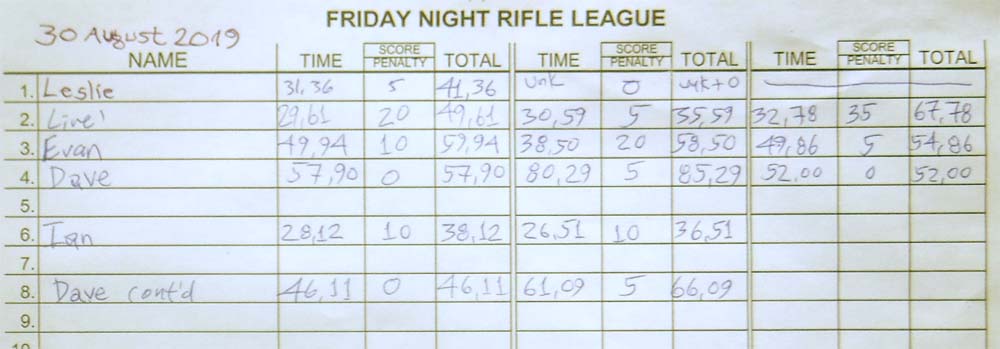 FRIDAY NIGHT RIFLE LEAGUE
30 August 2019
NAME TIME SCORE PENALTY TOTAL TIME SCORE PENALTY TOTAL TIME SCORE PENALTY TOTAL
1. Leslie 31,36 5 41,36 unk 0 unk+0
2. Live' 29,61 20 49,61 30,59 5 35,59 32,78 35 67,78
3. Evan 49,94 10 59,94 38,50 20 58,50 49,86 5 54,86
4. Dave 57,90 0 57,90 80,29 5 85,29 52.00 0 52,00
5.
6. Ian 28,12 10 38,12 26,51 10 36,51
7.
8. Dave cont'd 46,11 0 46,11 61,09 5 66,09
9.
10.